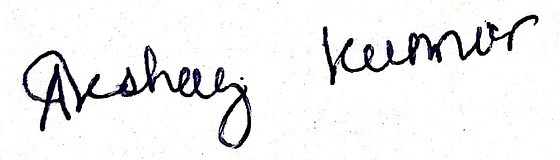 Akshay Kumar